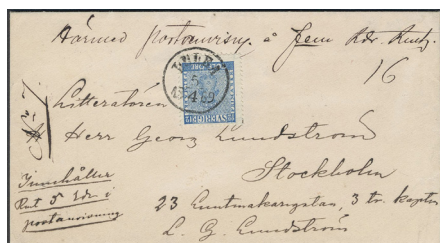 Härmed postanvisn. å fem Rdr Rmt.
16
Litteratören
Herr Georg Lundström
Stockholm
Innehåller
Rmt 5 Rdr i
postanvisning
23 Luntmakargatan, 3 tr.
L. G. Lundström